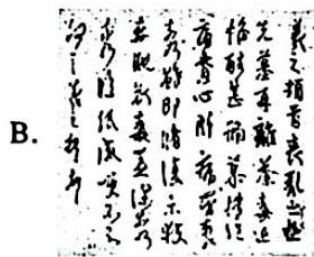 B.
羲之頓首喪亂之極
先墓再離荼毒追
惟酷甚號慕摧絕
痛貫心肝痛當奈何
奈何雖即脩復未獲
奔馳哀毒益深奈何
奈何臨紙感哽不知
何言羲之頓首頓首